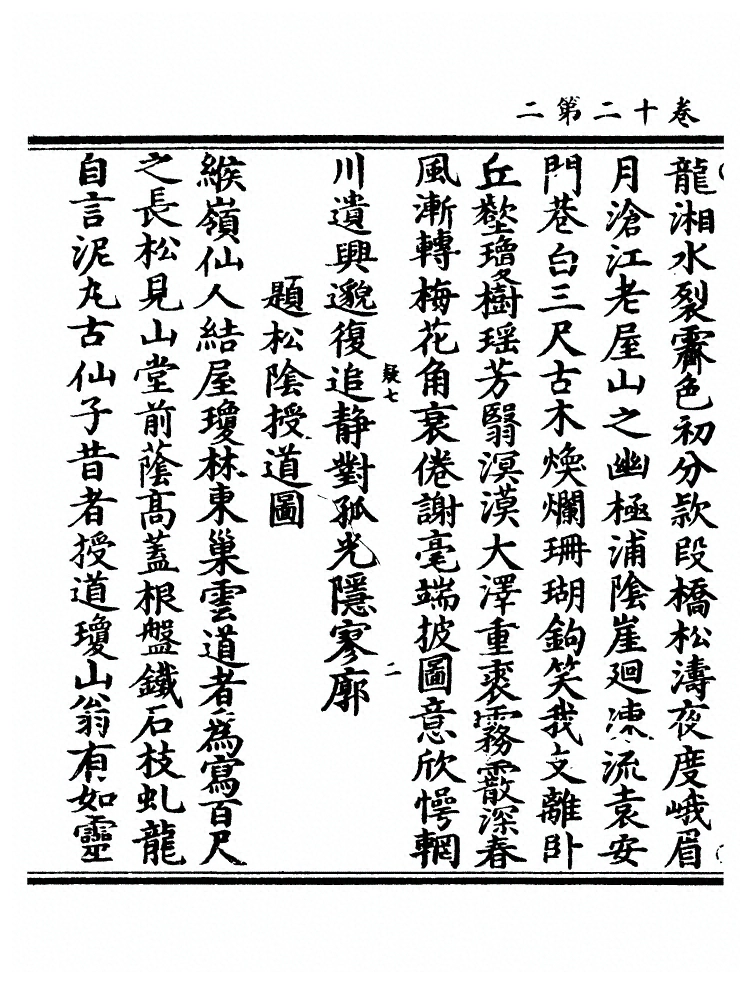 卷十二第二
龍湘水裂霽色初分款段橋松濤夜度峨眉
月滄江老屋山之幽極浦陰崖迴凍流袁安
門巷白三尺古木煥爛珊瑚鉤笑我支離卧
丘壑瓊樹瑶芳翳溟漠大澤重裘霧霰深春
風漸轉梅花角衰倦謝毫端披圖意欣愕輞
川遺興邈復追靜對孤光隱寥廓
疑七
二
題松陰授道圖
緱嶺仙人結屋瓊林東巢雲道者為寫百尺
之長松見山堂前蔭高蓋根盤鐵石枝虬龍
自言泥丸古仙子昔者授道瓊山翁有如靈